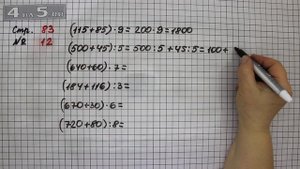 Стр. 83
№ 12
(115+85)·9=200·9=1800
(500+45):5=500:5+45:5=100+
(640+60):7=
(184+116):3=
(670+30)·6=
(720+80):8=